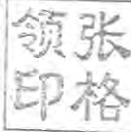 张格
领印